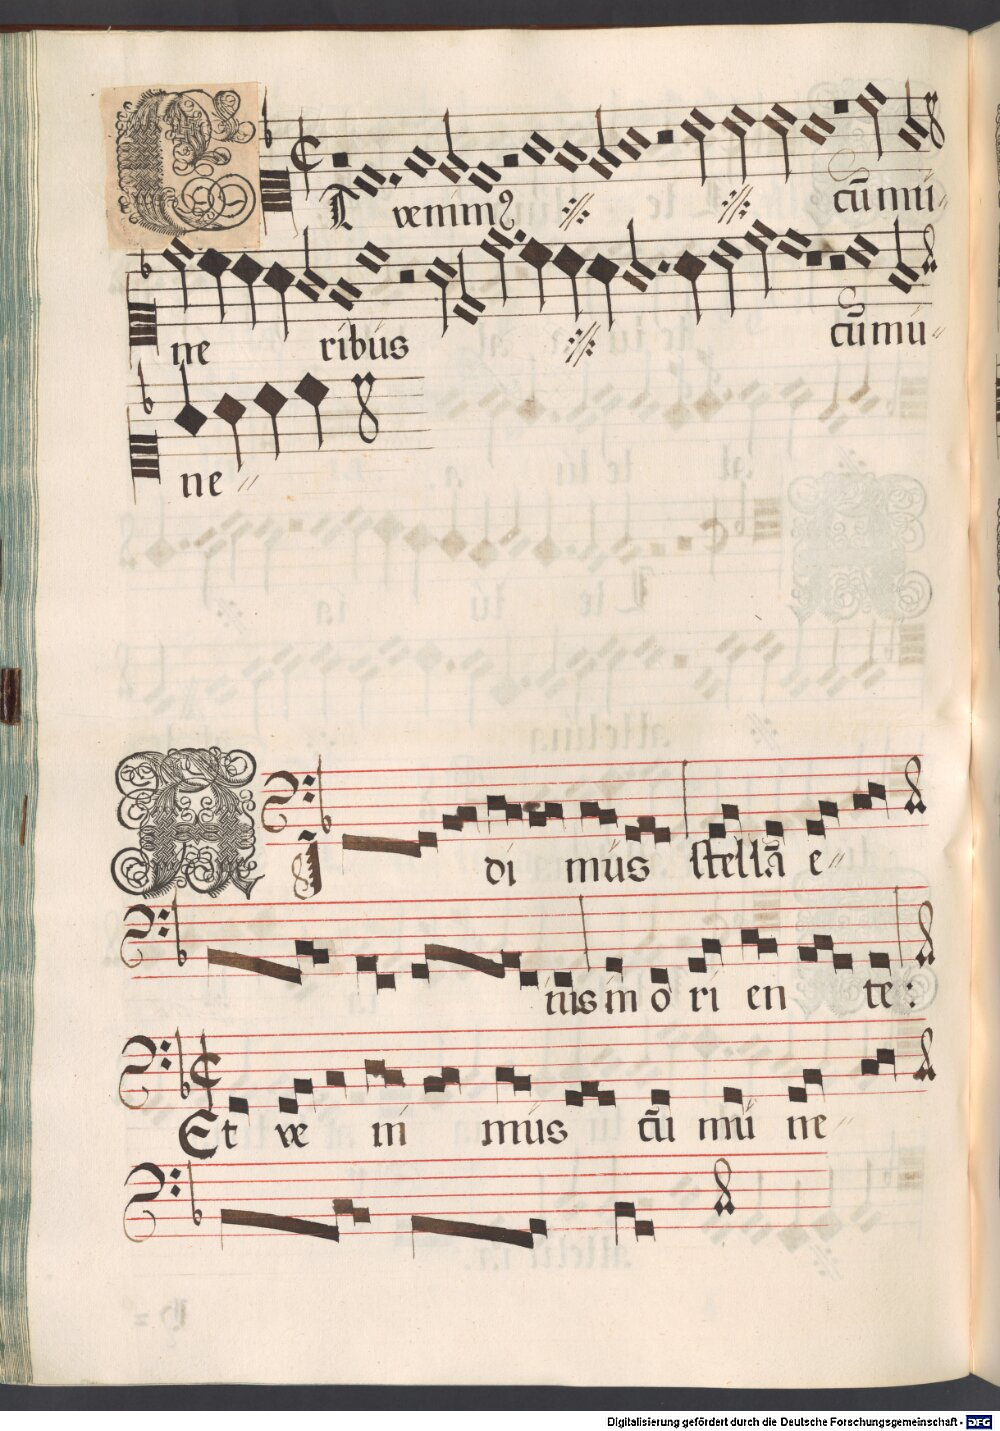 Et venimꝰ cū mu-
ne ribus cū mu-
ne-
di mus stellā e-
ius in o ri en te:
Et ve ni mus cū mu ne-
Digitalisierung gefördert durch die Deutsche Forschungsgemeinschaft - DFG